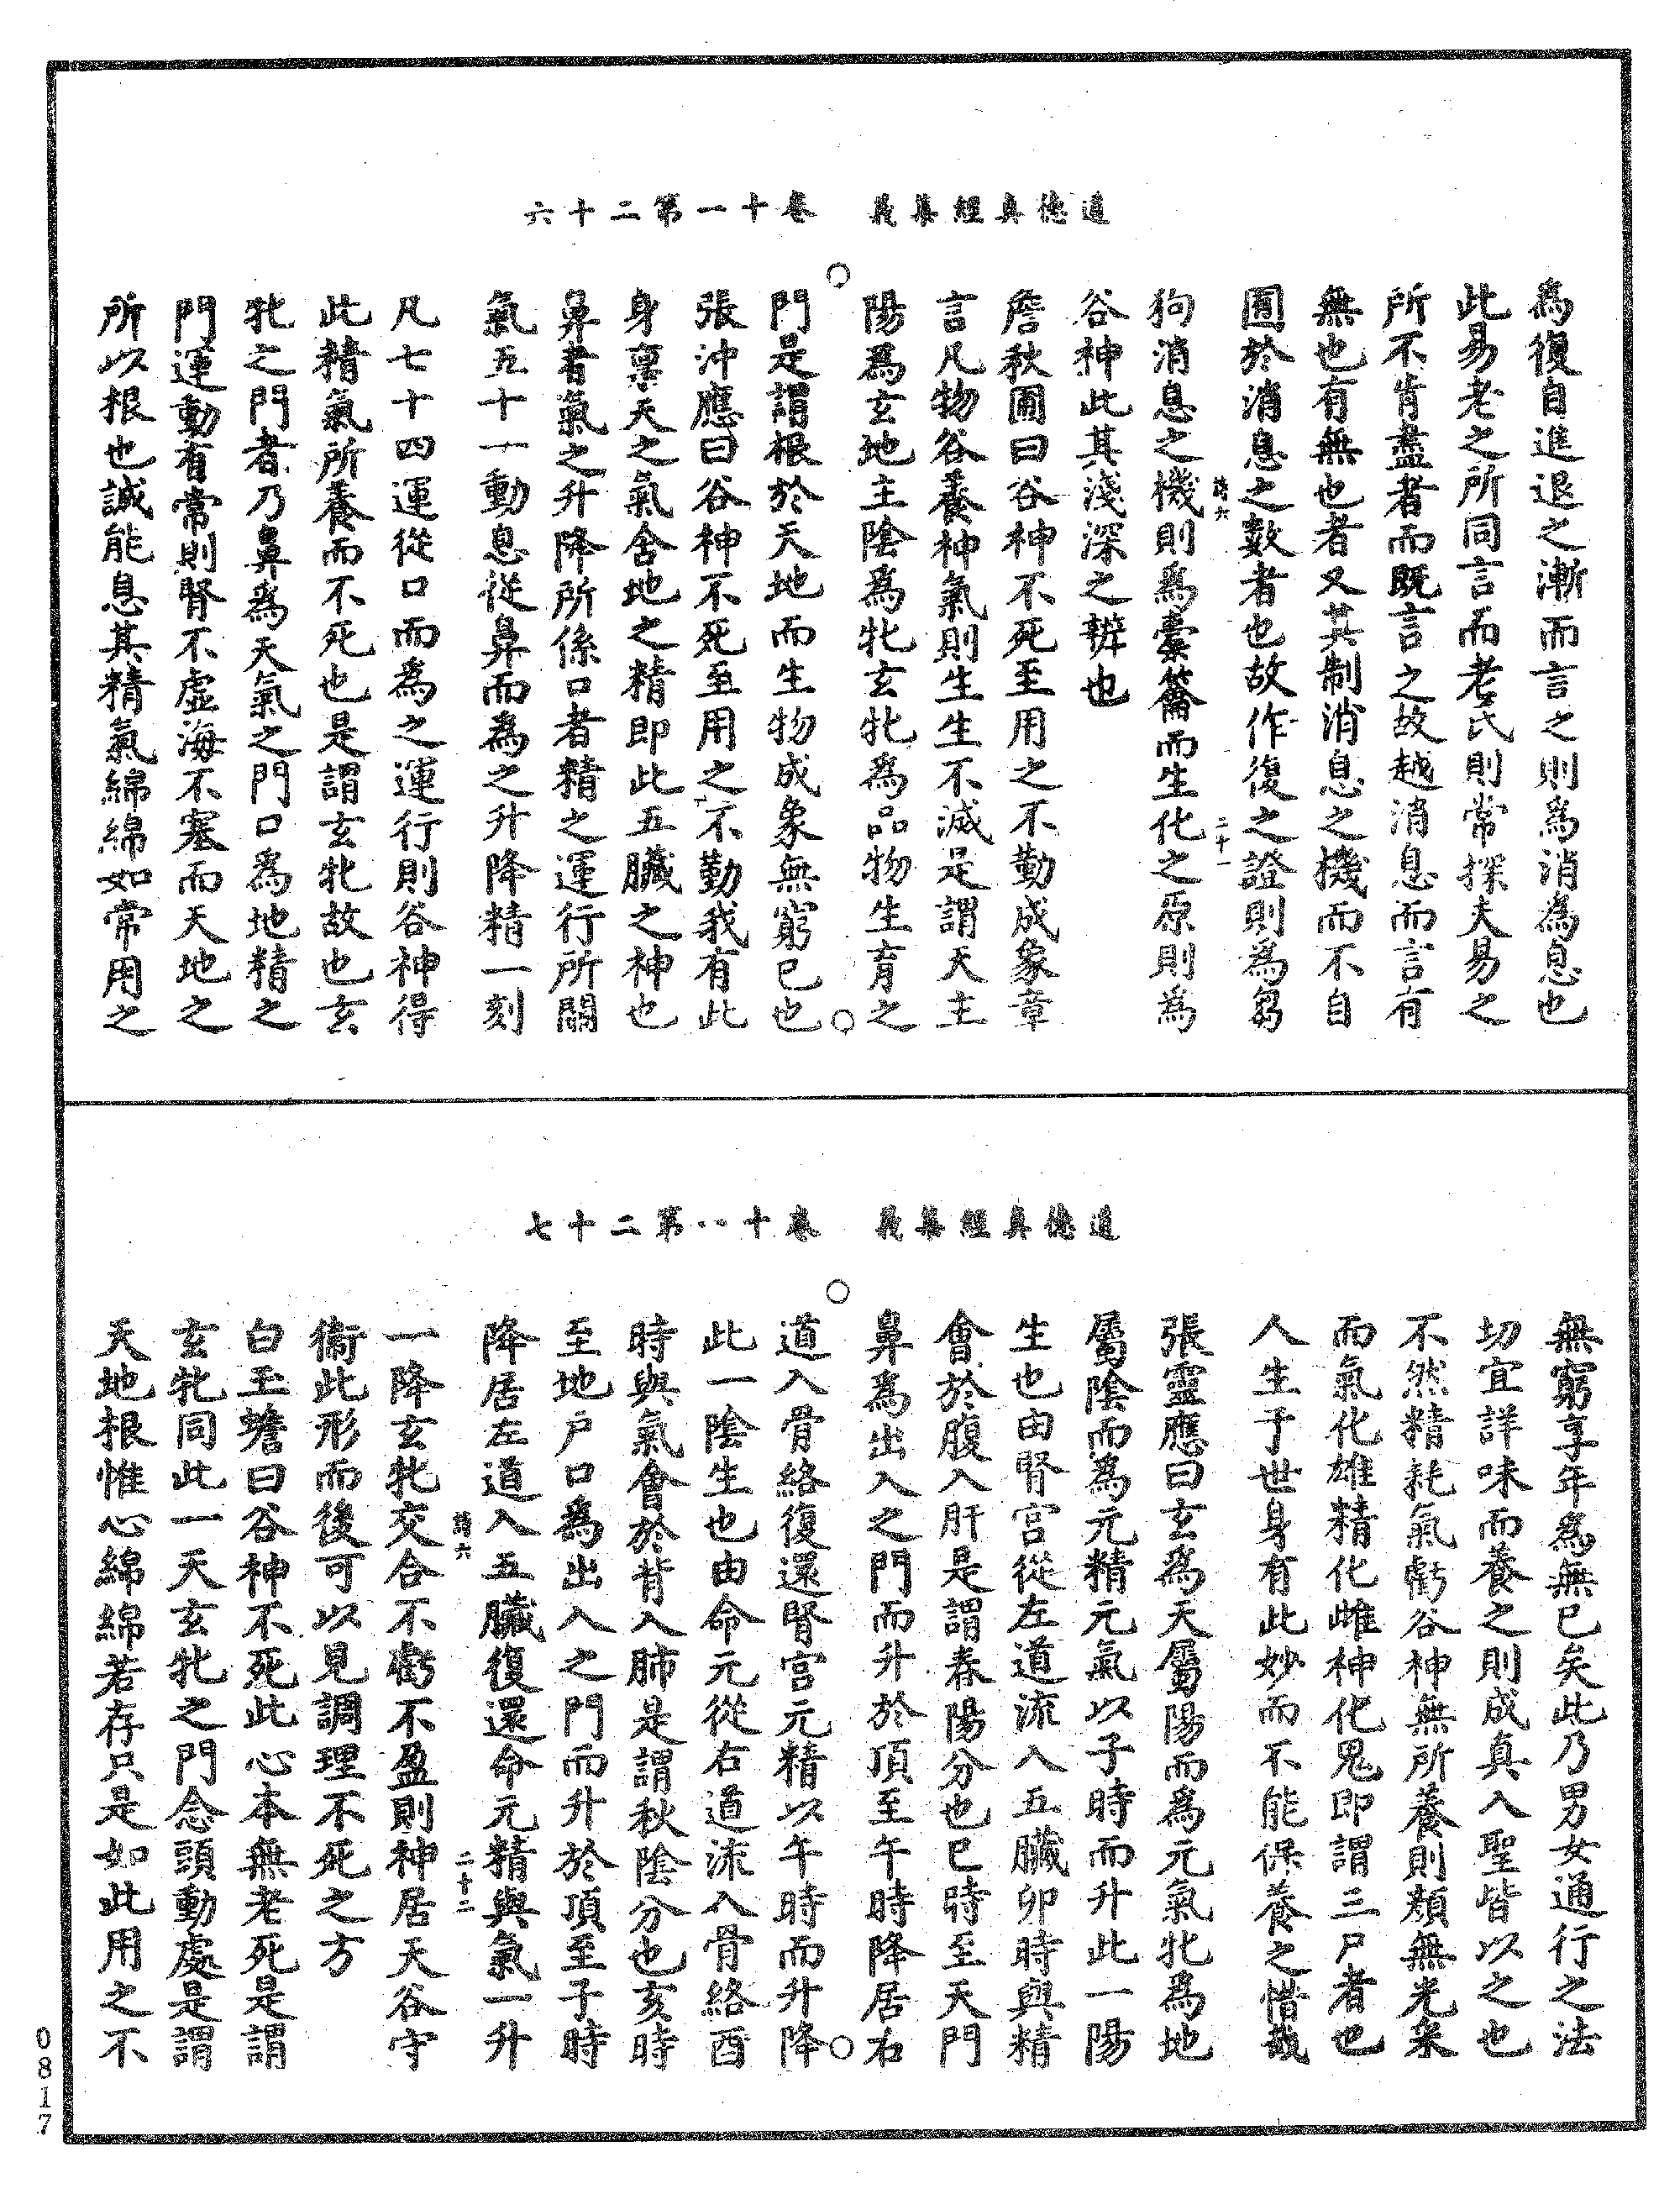 道德真經集義　卷十一第二十六
為復自進退之漸而言之則為消為息也
此易老之所同言而老氏則常探夫易之
所不肯盡者而既言之故越消息而言有
無也有無也者又其制消息之機而不自
囿於消息之數者也故作復之證則為芻
詩六
二十一
狗消息之機則為橐籥而生化之原則為
谷神此其淺深之辨也
詹秋圃曰谷神不死至用之不勤成象章
言凡物谷養神氣則生生不滅是謂天主
陽為玄地主陰為牝玄牝為品物生育之
門是謂根於天地而生物成象無窮已也
張沖應曰谷神不死至用之不勤我有此
身稟天之氣舍地之精即此五臟之神也
鼻者氣之升降所係口者精之運行所關
氣五十一動息從鼻而為之升降精一刻
凡七十四運從口而為之運行則谷神得
此精氣所養而不死也是謂玄牝故也玄
牝之門者乃鼻為天氣之門口為地精之
門運動有常則腎不虛海不塞而天地之
所以根也誠能息其精氣綿綿如常用之
道德真經集義　卷十一第二十七
無窮享年為無已矣此乃男女通行之法
切宜詳味而養之則成真入聖皆以之也
不然精耗氣虧谷神無所養則顏無光采
而氣化雄精化雌神化鬼即謂三尸者也
人生于世身有此妙而不能保養之惜哉
張靈應曰玄為天屬陽而為元氣牝為地
屬陰而為元精元氣以子時而升此一陽
生也由腎宮從左道流入五臟卯時與精
會於腹入肝是謂春陽分也巳時至天門
鼻為出入之門而升於頂至午時降居右
道入骨絡復還腎宮元精以午時而升降
此一陰生也由命元從右道流入骨絡酉
時與氣會於背入肺是謂秋陰分也亥時
至地戶口為出入之門而升於頂至子時
降居左道入五臟復還命元精與氣一升
詩六
二十二
一降玄牝交合不虧不盈則神居天谷守
衞此形而後可以見調理不死之方
白玉蟾曰谷神不死此心本無老死是謂
玄牝同此一天玄牝之門念頭動處是謂
天地根惟心綿綿若存只是如此用之不
0817